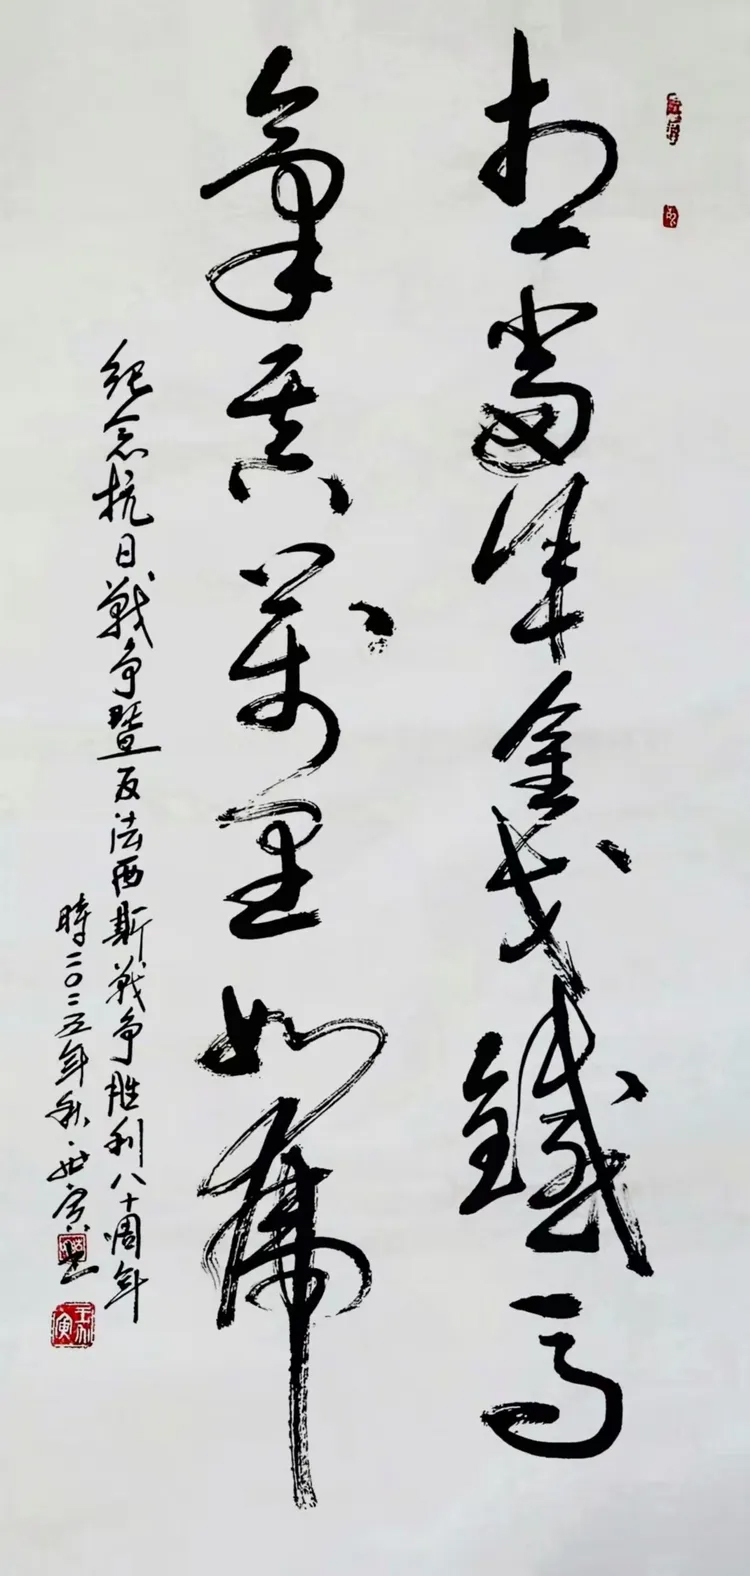 想當年金戈鐵馬
氣吞萬里如虎
紀念抗日戰争暨反法西斯戰争胜利八十周年
時二〇二五年秋